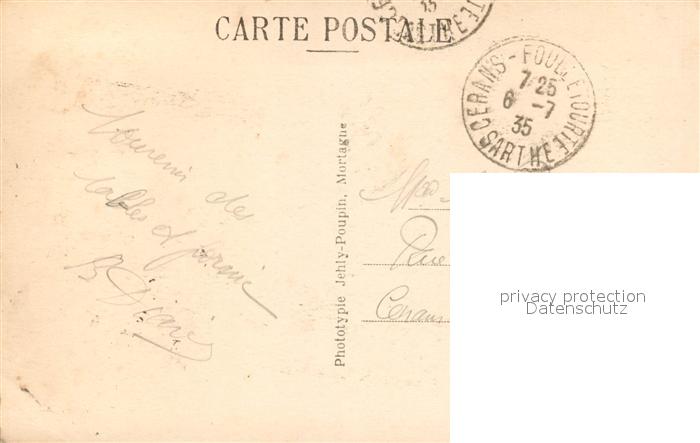 CARTE POSTALE
CERANS-FOULLETOURTE
7-25
6 -7
35
SARTHE
35
Souvenir des
Sables et
B
Phototypie Jehly-Poupin, Mortagne
Rue
Cerans
privacy protection
Datenschutz